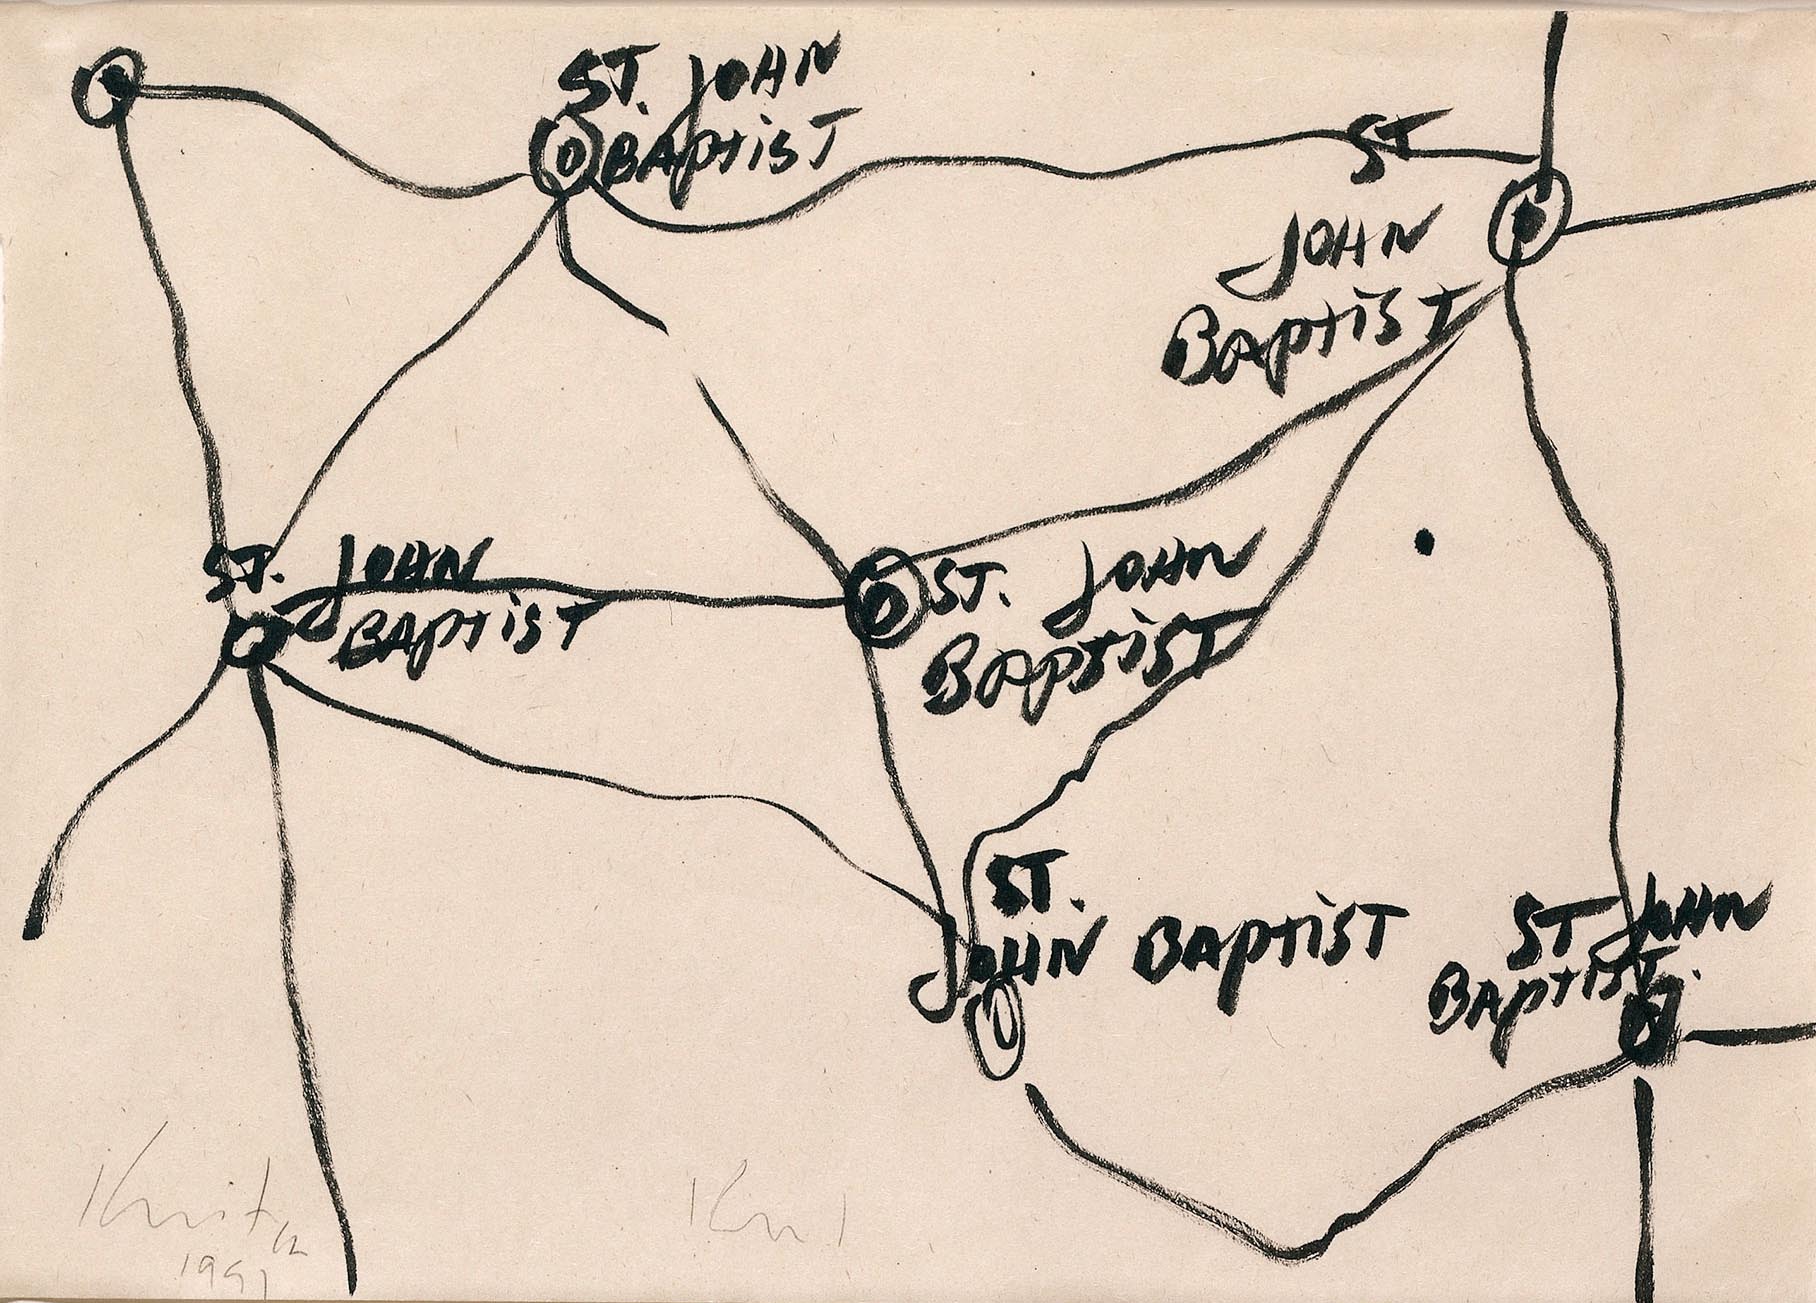 ST. JOHN
BAPTIST
ST
JOHN
BAPTIST
ST. JOHN
BAPTIST
ST. JOHN
BAPTIST
ST.
JOHN BAPTIST
ST JOHN
BAPTIST.
1991